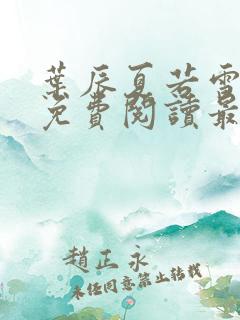 葉辰夏若雪
免費閱讀最
趙正永
未經同意禁止轉載